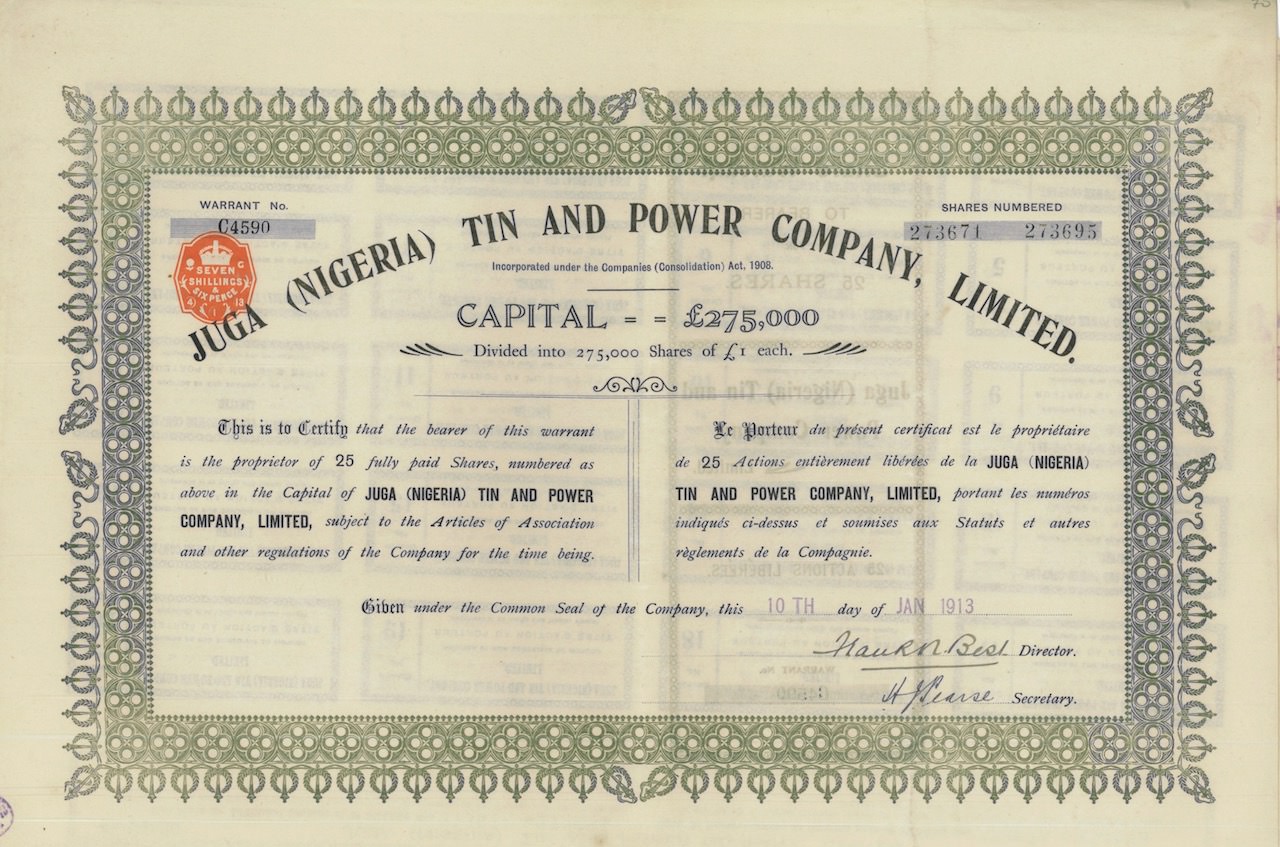 WARRANT No.
C4590
SHARES NUMBERED
273671 273695
SEVEN
SHILLINGS
&
SIXPENCE
JUGA (NIGERIA) TIN AND POWER COMPANY, LIMITED.
Incorporated under the Companies (Consolidation) Act, 1908.
CAPITAL = = £275,000
Divided into 275,000 Shares of £1 each.
This is to Certify that the bearer of this warrant
is the proprietor of 25 fully paid Shares, numbered as
above in the Capital of JUGA (NIGERIA) TIN AND POWER
COMPANY, LIMITED, subject to the Articles of Association
and other regulations of the Company for the time being.
Le Porteur du présent certificat est le propriétaire
de 25 Actions entièrement libérées de la JUGA (NIGERIA)
TIN AND POWER COMPANY, LIMITED, portant les numéros
indiqués ci-dessus et soumises aux Statuts et autres
règlements de la Compagnie.
Given under the Common Seal of the Company, this 10 TH day of JAN 1913
Best Director.
H J Pearse Secretary.